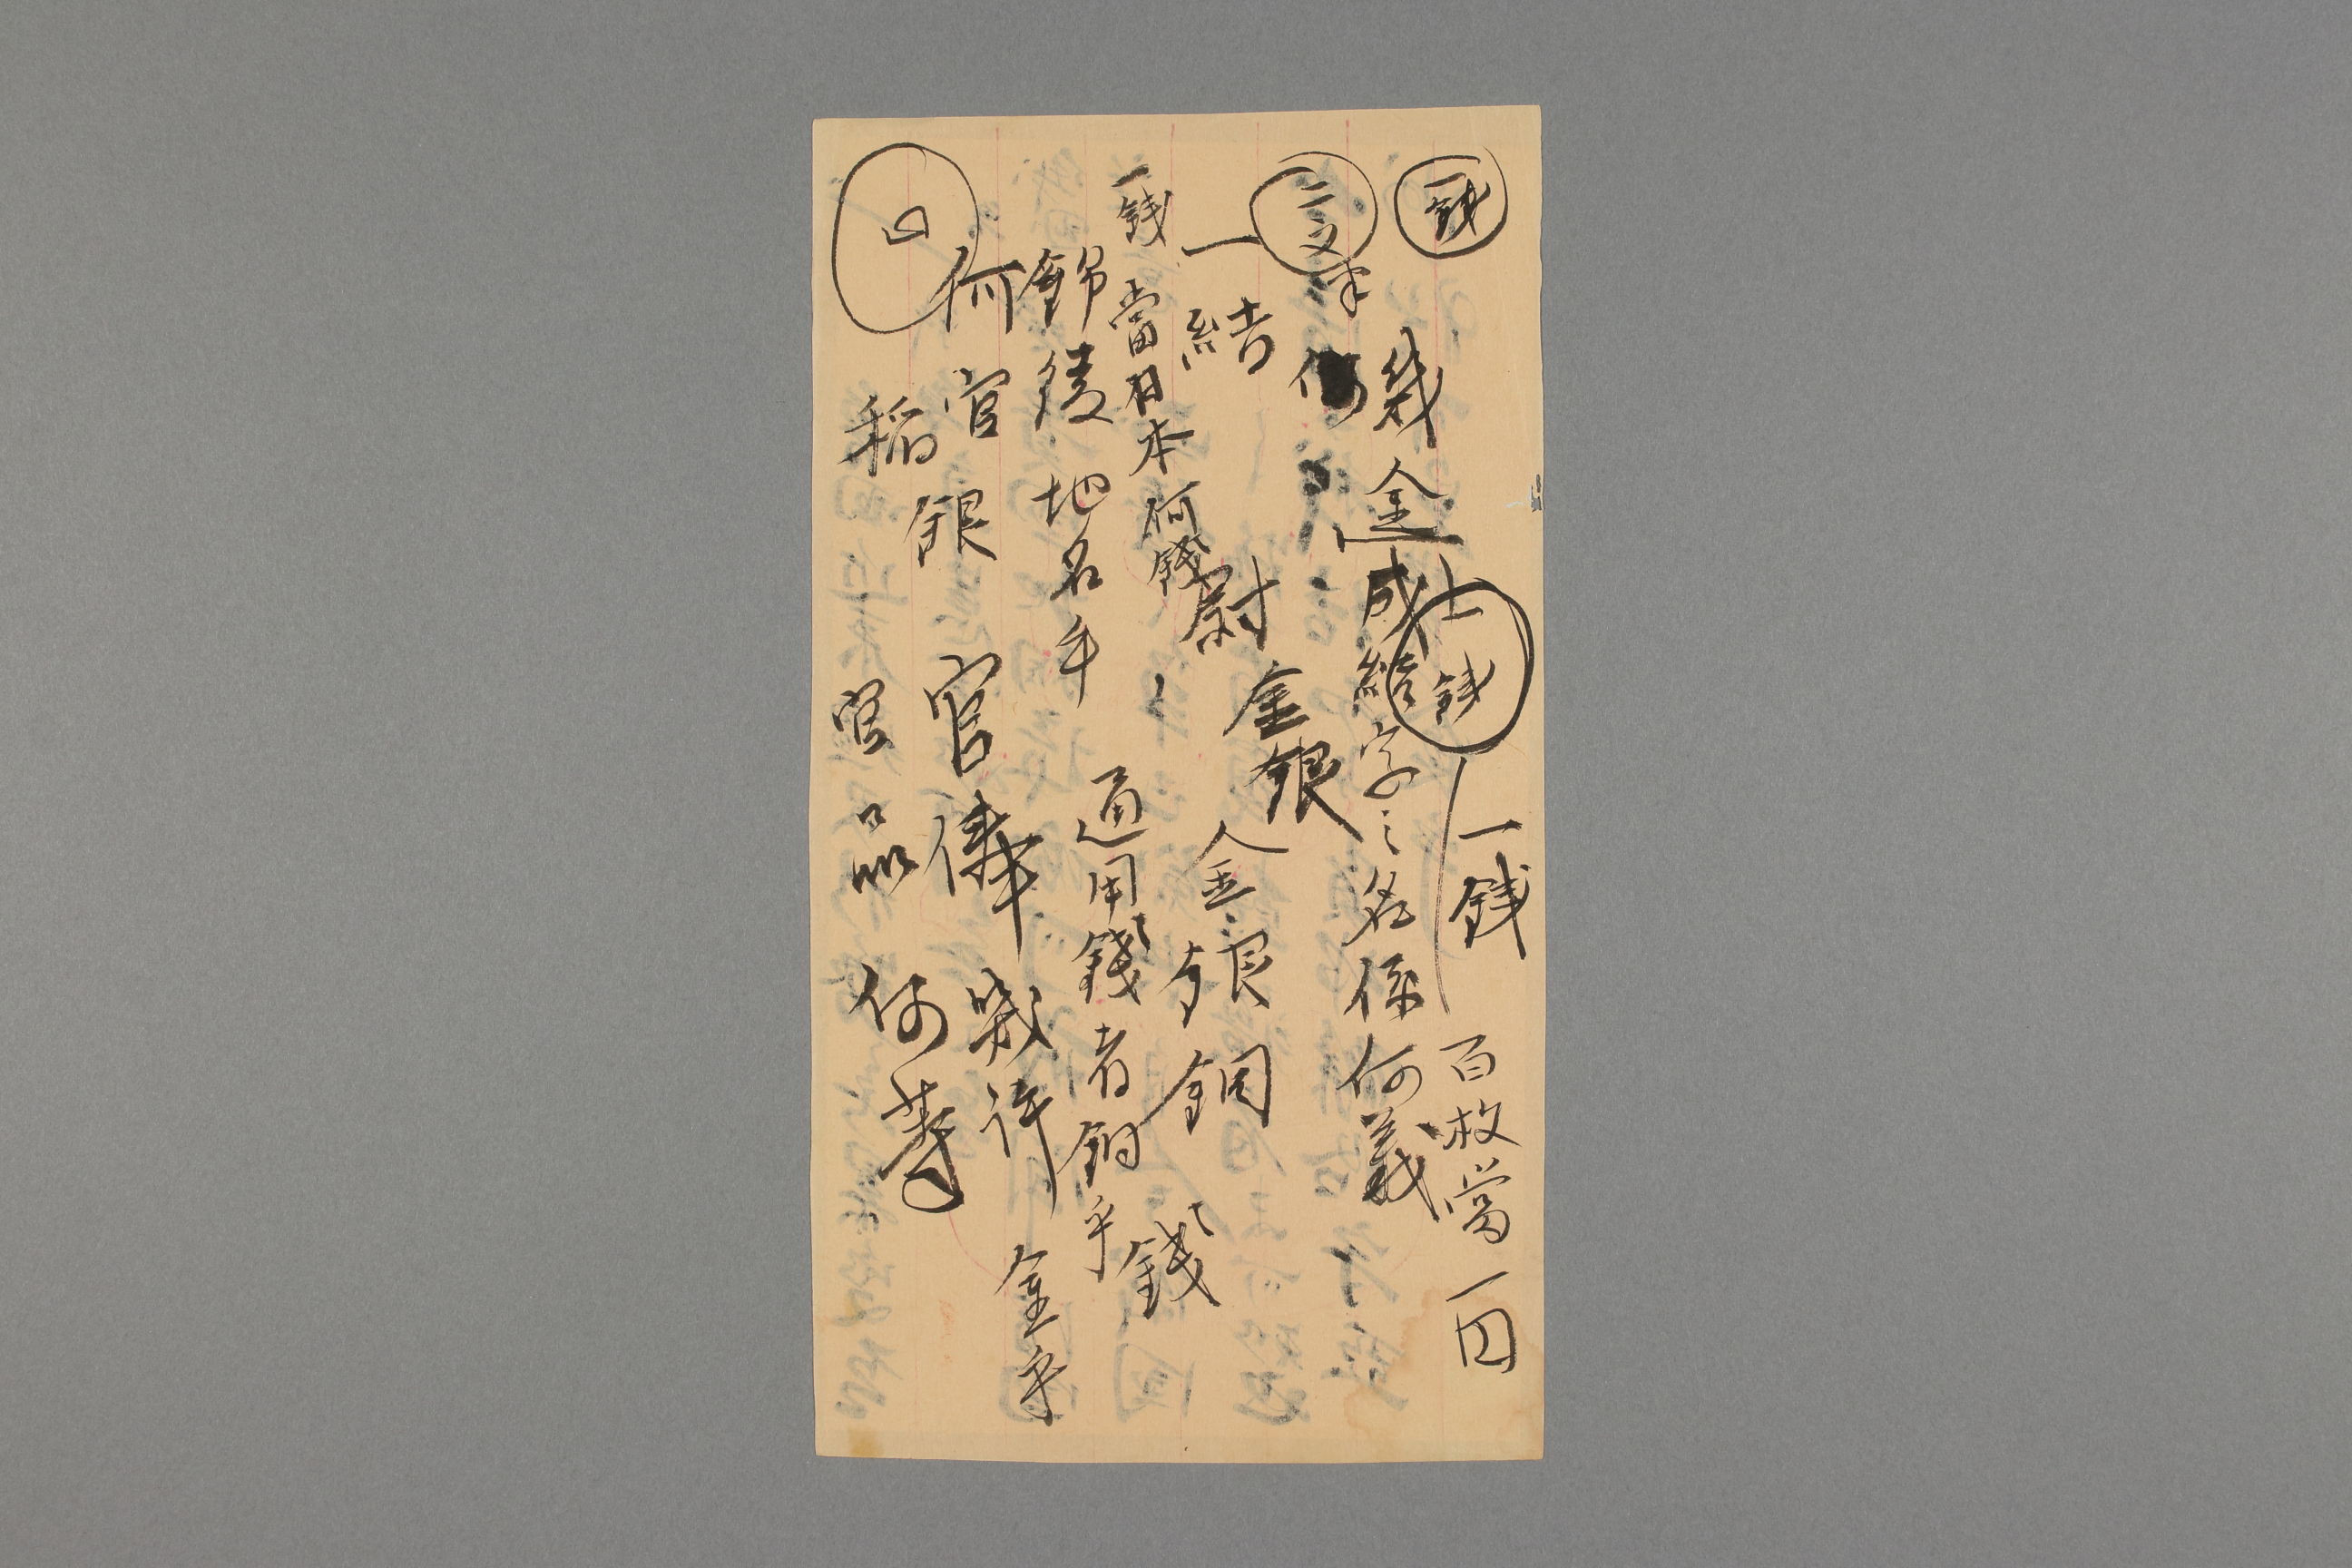 一錢
一錢
百枚當一円
錢
二文半
幾金
成結字之名係何義
何
一結
金銀
金銀銅錢
尉
一錢
當日本何錢
通用錢者銅乎
錦綾地名乎
何官銀
官俸幾許
金乎
稲
官品何等